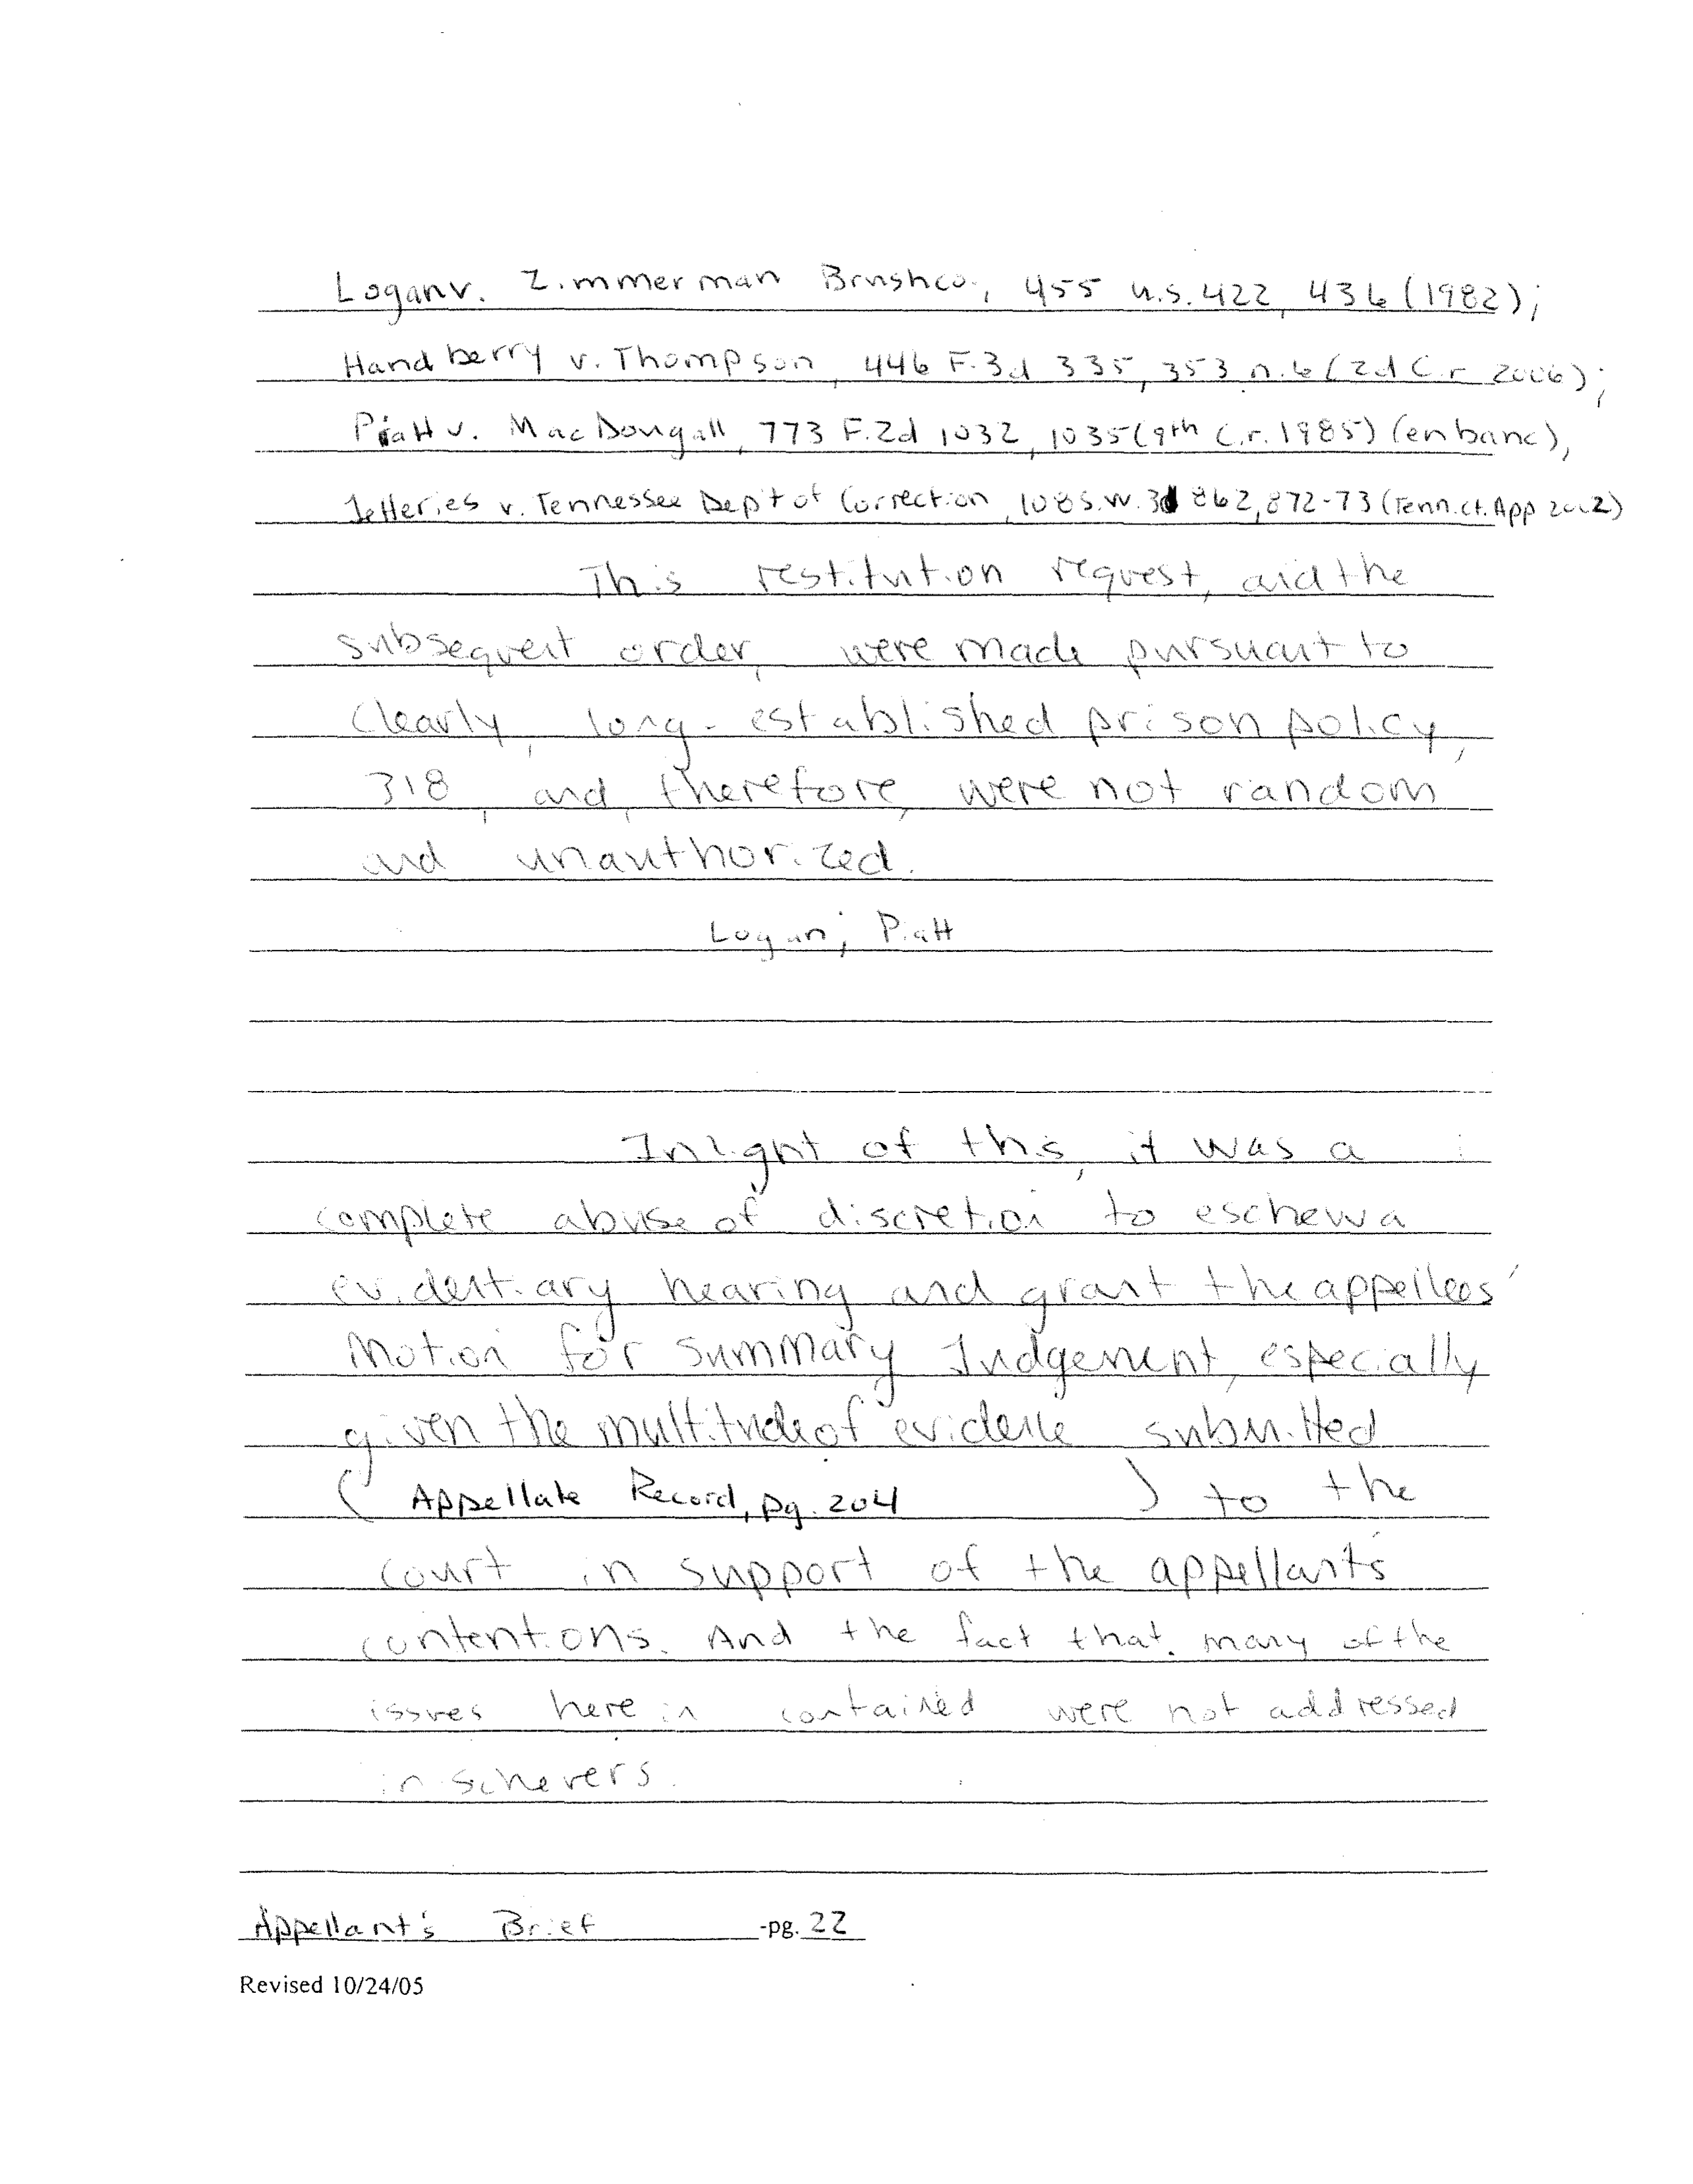 Logan v. Zimmerman Brush co., 455 U.S. 422, 436 (1982);
Handberry v. Thompson, 446 F.3d 335, 353 n.6 (2d Cir 2006);
Piatt v. MacDougall, 773 F.2d 1032, 1035 (9th Cir. 1985) (en banc),
Jefferies v. Tennessee Dep't of Correction, 108 S.W. 3d 862, 872-73 (Tenn. Ct. App 2002)
This restitution request, and the
subsequent order, were made pursuant to
Clearly, long-established prison policy,
318, and, therefore, were not random
and unauthorized.
Logan; Piatt
In light of this, it was a
complete abuse of discretion to eschew a
evidentiary hearing and grant the appellees'
Motion for Summary Judgement, especially
given the multitude of evidence submitted
( Appellate Record, pg. 204 ) to the
court in support of the appellant's
contentions. And the fact that many of the
issues herein contained were not addressed
in Schevers.
Appellant's Brief -pg. 22
Revised 10/24/05